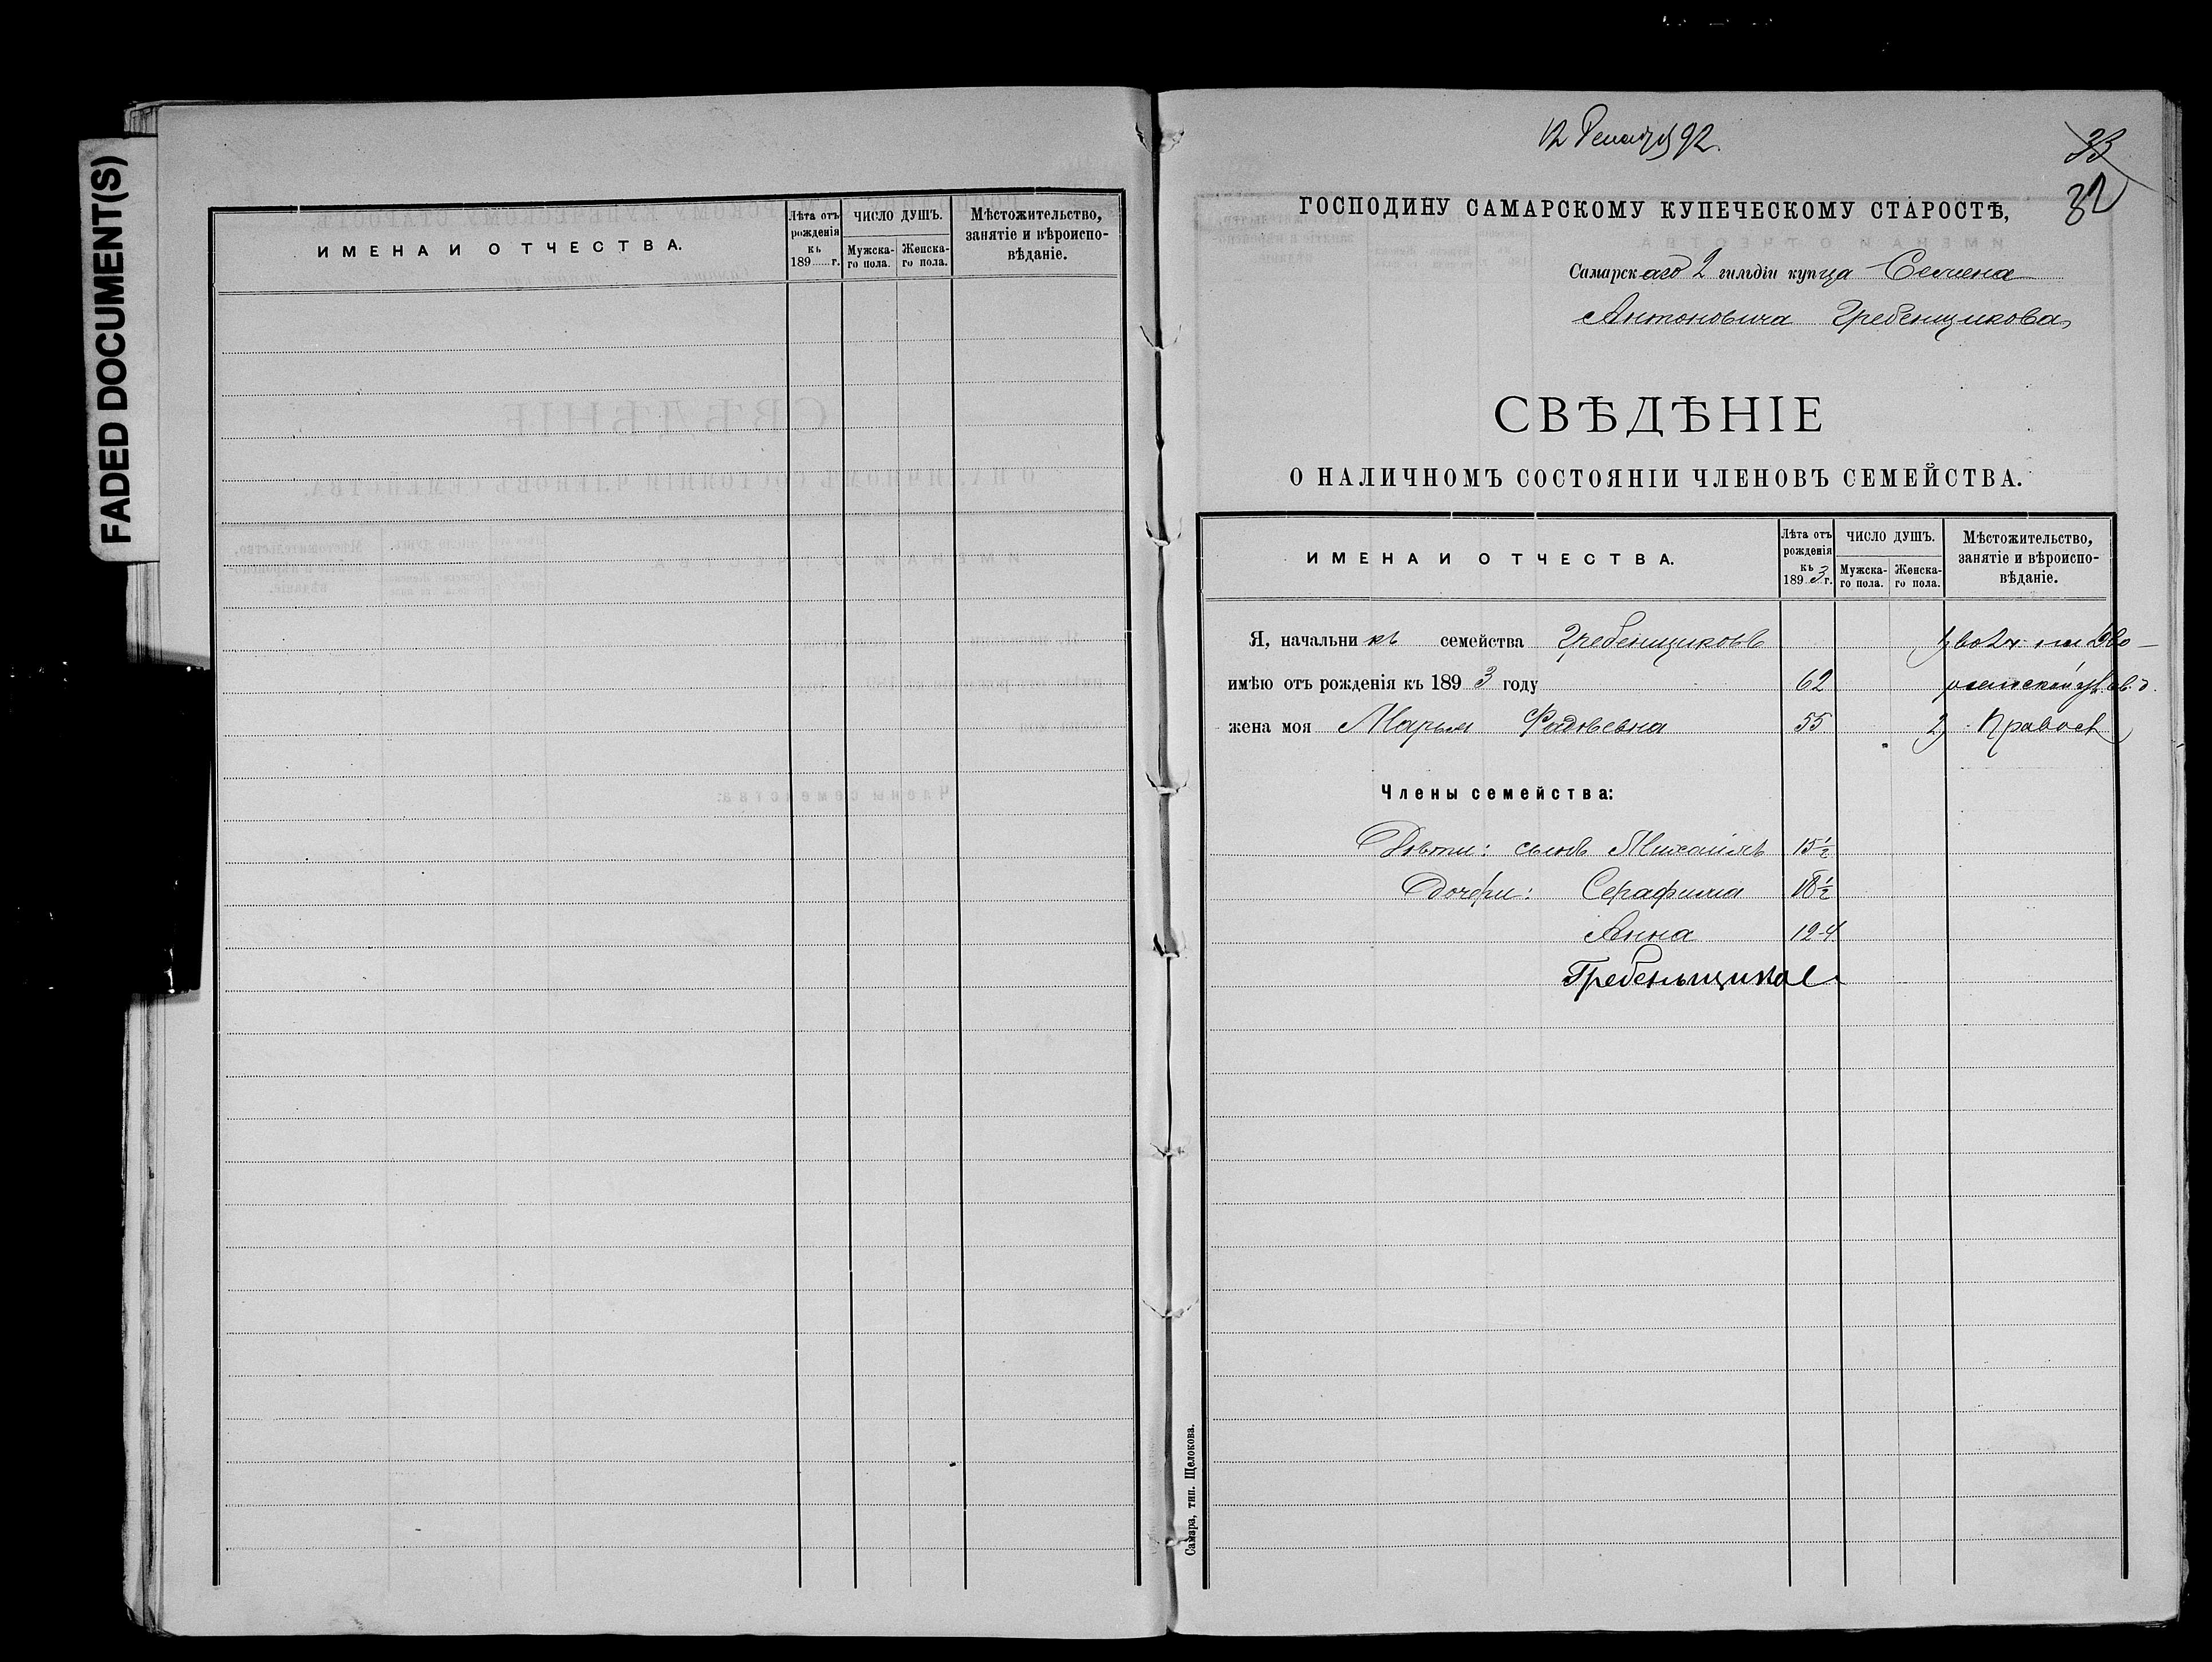 FADED DOCUMENT(S)
ИМЕНА И ОТЧЕСТВА.
Лѣта отъ рожденія къ 189 г.
ЧИСЛО ДУШЪ.
Мужска-го пола.
Женска-го пола.
Мѣстожительство, занятіе и вѣроиспо-вѣданіе.
12 Декабря 92
33
32
ГОСПОДИНУ САМАРСКОМУ КУПЕЧЕСКОМУ СТАРОСТѢ,
Самарскаго 2 гильдіи купца Семена
Антоновича Гребенщикова
СВѢДѢНІЕ
О НАЛИЧНОМЪ СОСТОЯНІИ ЧЛЕНОВЪ СЕМЕЙСТВА.
ИМЕНА И ОТЧЕСТВА.
Лѣта отъ рожденія къ 1893 г.
ЧИСЛО ДУШЪ.
Мужска-го пола.
Женска-го пола.
Мѣстожительство, занятіе и вѣроиспо-вѣданіе.
Я, начальникъ семейства Гребенщиковъ
имѣю отъ рожденія къ 1893 году 62
жена моя Марья 55 2) Правосл
Члены семейства:
Дѣти: сынъ Михаилъ 15 1/2
Дочери: Серафима 1/2
Анна 12-4
Гребеньщиков
Самара, тип. Щелокова.